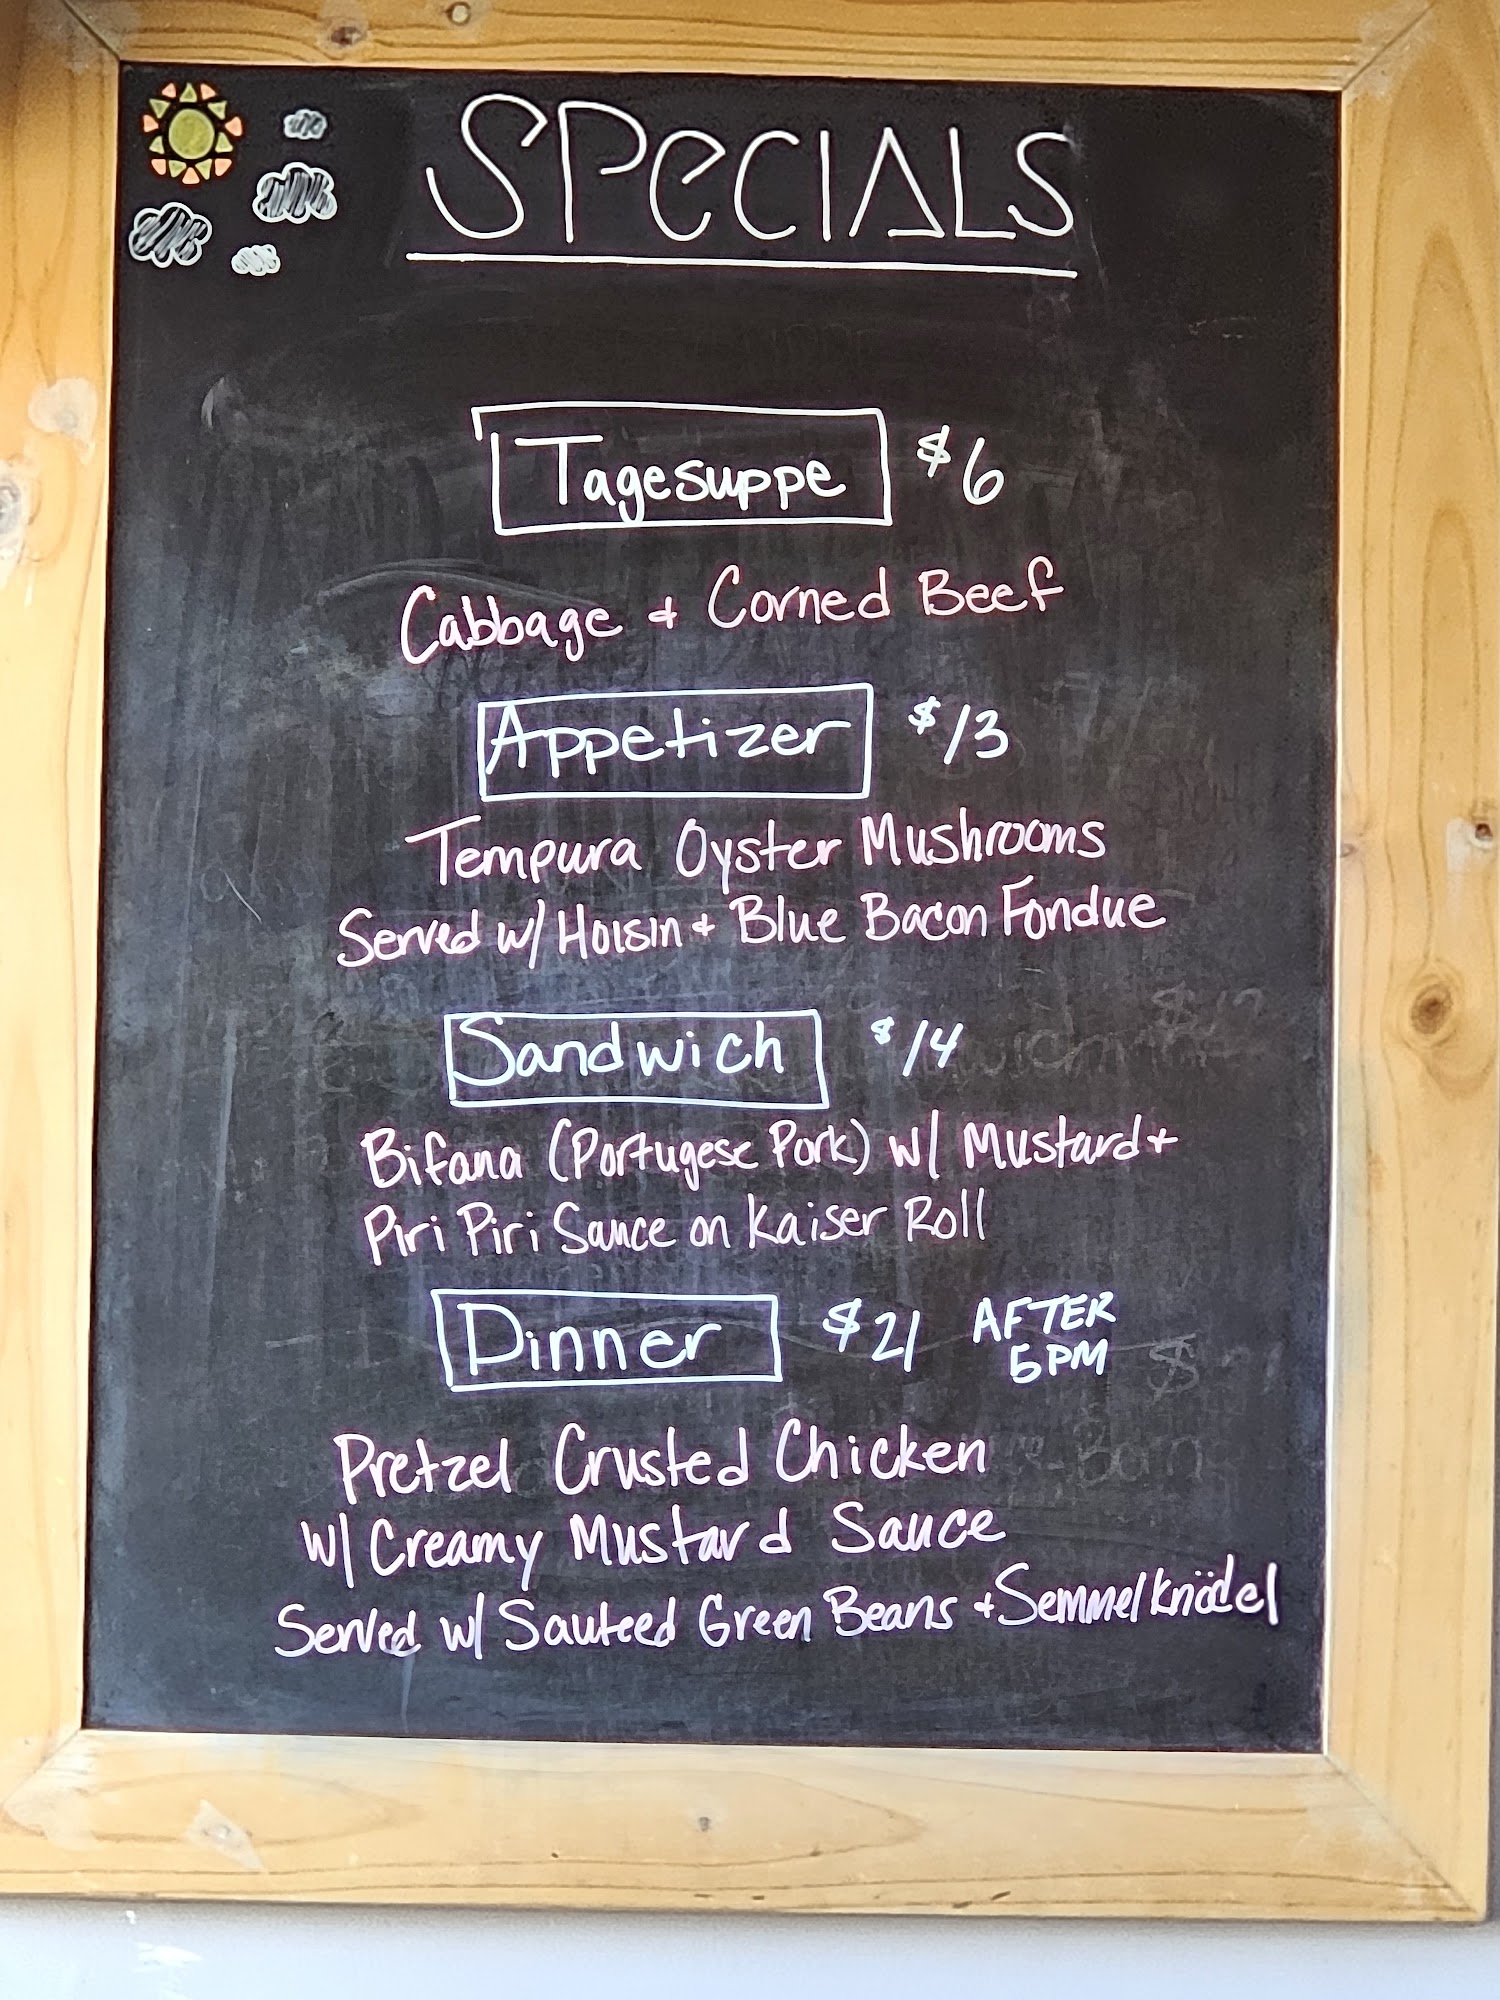 SPeCIALS
Tagesuppe $6
Cabbage + Corned Beef
Appetizer $13
Tempura Oyster Mushrooms
Served w/ Hoisin + Blue Bacon Fondue
Sandwich $14
Bifana (Portugese Pork) w/ Mustard +
Piri Piri Sauce on Kaiser Roll
Dinner $21 AFTER
5PM
Pretzel Crusted Chicken
w/ Creamy Mustard Sauce
Served w/ Sauteed Green Beans + Semmelknödel